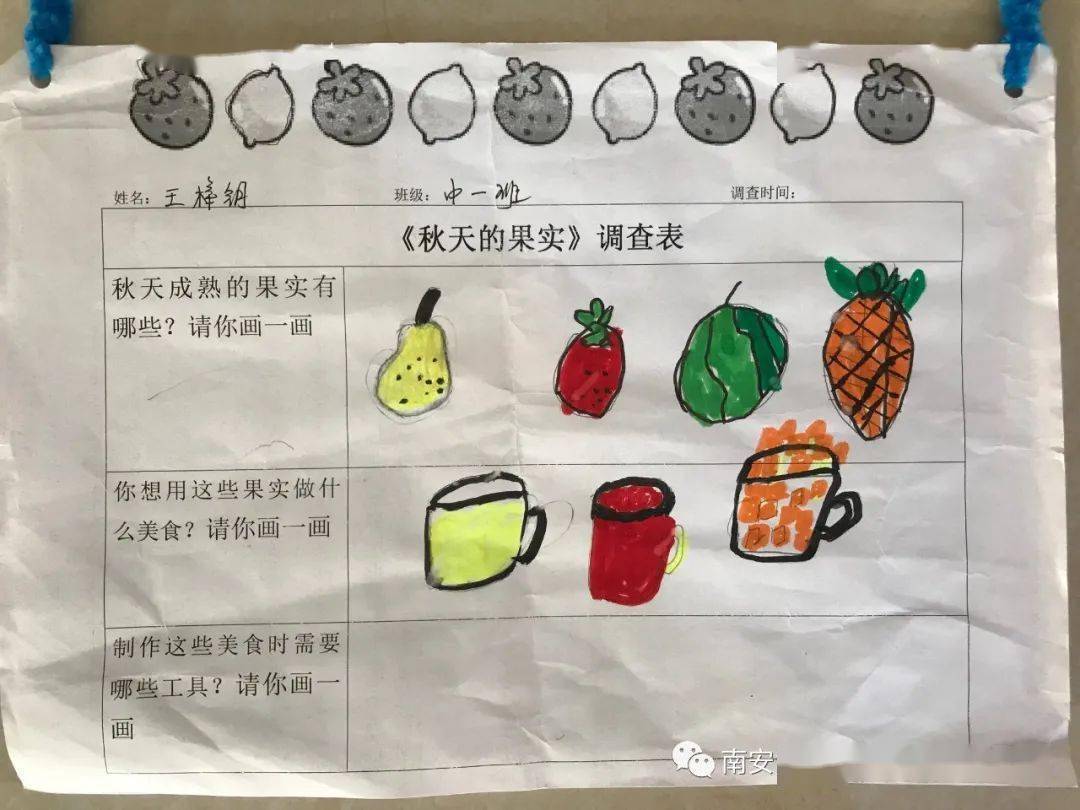 姓名：王梓钥 班级：中一班 调查时间：
《秋天的果实》调查表
秋天成熟的果实有
哪些？请你画一画
你想用这些果实做什
么美食？请你画一画
制作这些美食时需要
哪些工具？请你画一
画
南安